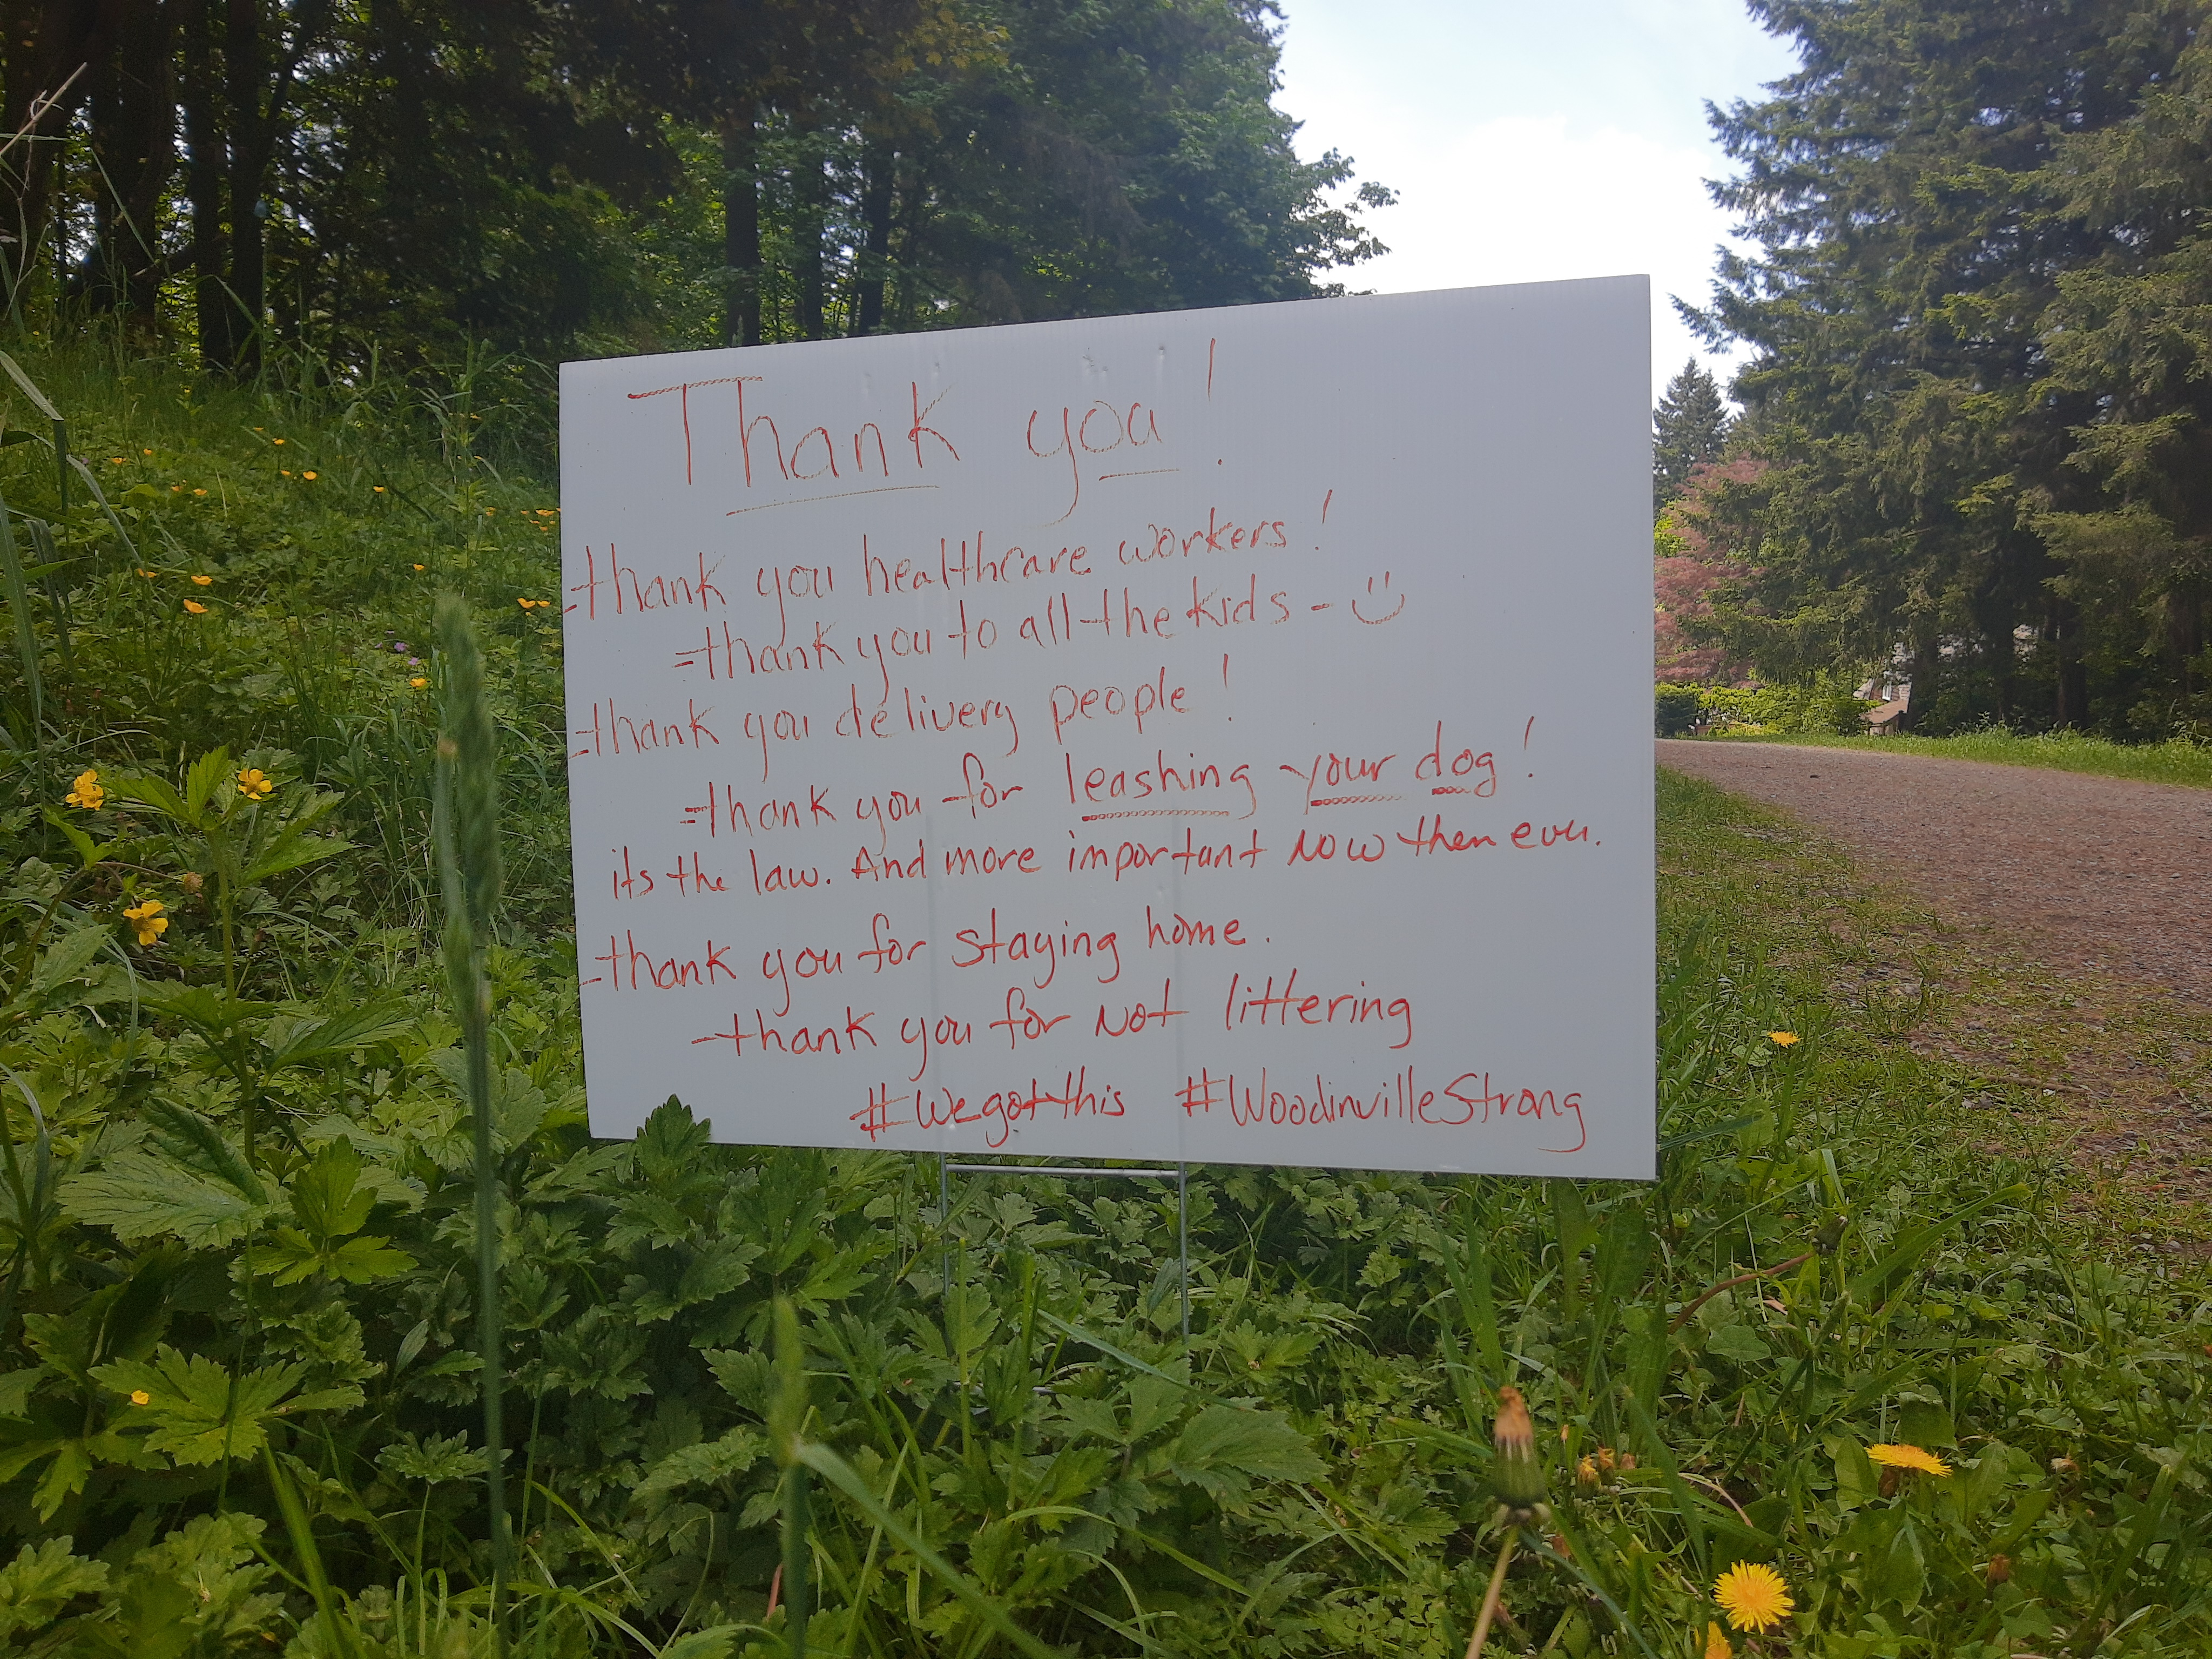 Thank you!
-thank you healthcare workers!
-thank you to all the kids - :)
-thank you delivery people!
-thank you for leashing your dog!
its the law. And more important now then ever.
-thank you for staying home.
-thank you for Not littering
#Wegotthis #WoodinvilleStrong